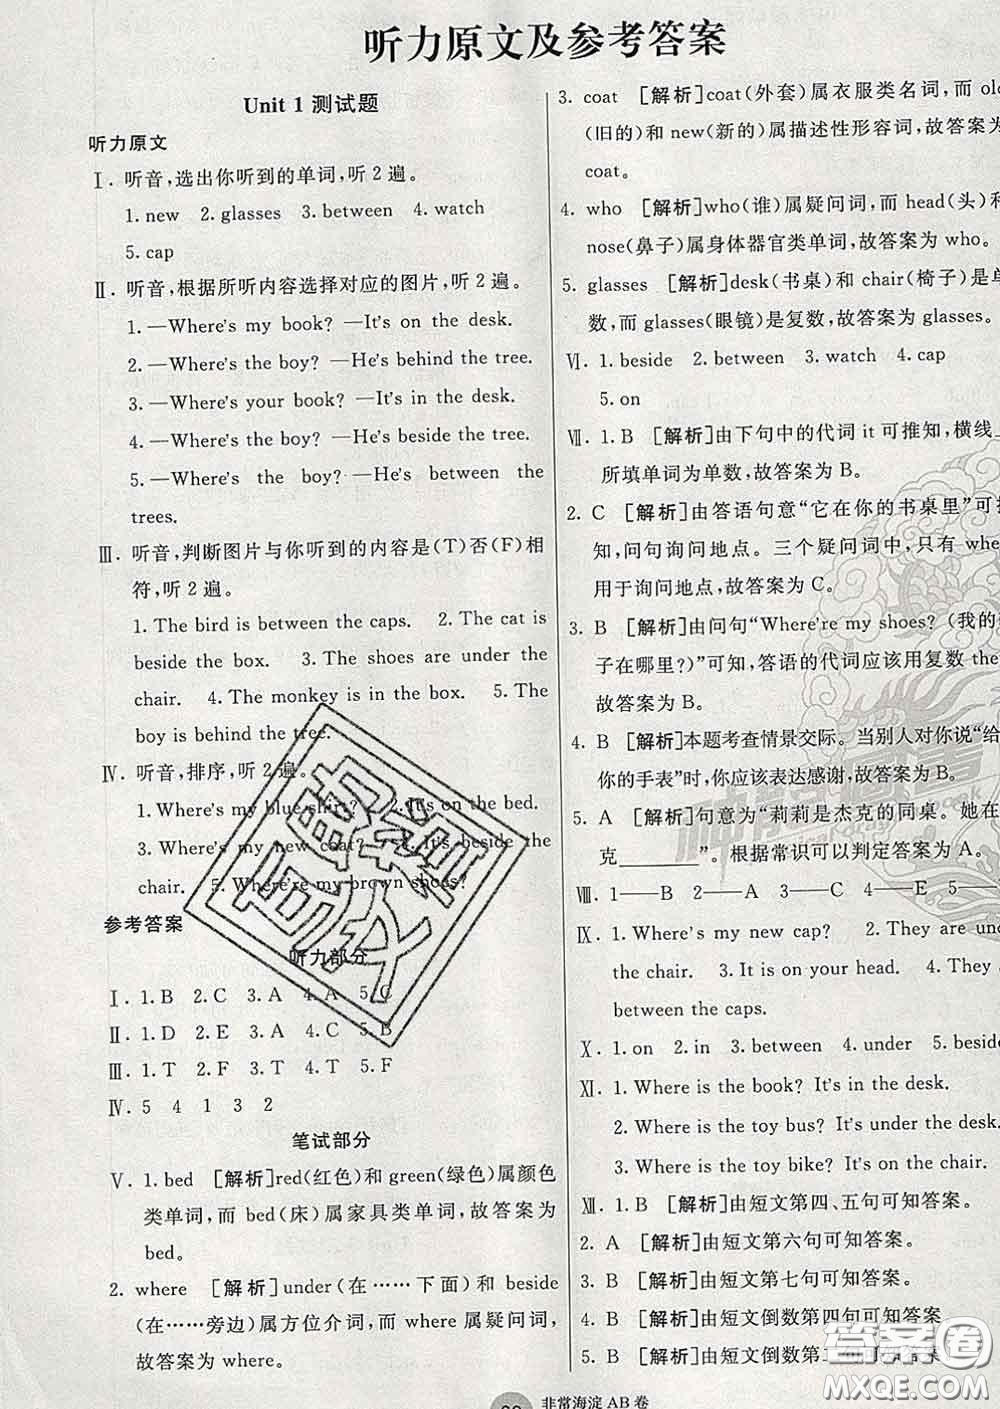 听力原文及参考答案
Unit 1 测试题
听力原文
Ⅰ. 听音,选出你听到的单词,听 2 遍。
1. new 2. glasses 3. between 4. watch
5. cap
Ⅱ. 听音,根据所听内容选择对应的图片,听 2 遍。
1. —Where's my book? —It's on the desk.
2. —Where's the boy? —He's behind the tree.
3. —Where's your book? —It's in the desk.
4. —Where's the boy? —He's beside the tree.
5. —Where's the boy? —He's between the
trees.
Ⅲ. 听音,判断图片与你听到的内容是(T)否(F)相
符,听 2 遍。
1. The bird is between the caps. 2. The cat is
beside the box. 3. The shoes are under the
chair. 4. The monkey is in the box. 5. The
boy is behind the tree.
Ⅳ. 听音,排序,听 2 遍。
1. Where's my blue shirt? 2. It's on the bed.
3. Where's my new coat? 4. It's beside the
chair. 5. Where're my brown shoes?
参考答案
听力部分
Ⅰ. 1. B 2. C 3. A 4. A 5. C
Ⅱ. 1. D 2. E 3. A 4. C 5. B
Ⅲ. 1. T 2. F 3. T 4. T 5. F
Ⅳ. 5 4 1 3 2
笔试部分
Ⅴ. 1. bed [解析]red(红色)和 green(绿色)属颜色
类单词,而 bed(床)属家具类单词,故答案为
bed。
2. where [解析]under(在……下面)和 beside
(在……旁边)属方位介词,而 where 属疑问词,
故答案为 where。
3. coat [解析]coat(外套)属衣服类名词,而 old
(旧的)和 new(新的)属描述性形容词,故答案为
coat。
4. who [解析]who(谁)属疑问词,而 head(头)和
nose(鼻子)属身体器官类单词,故答案为 who。
5. glasses [解析]desk(书桌)和 chair(椅子)是单
数,而 glasses(眼镜)是复数,故答案为 glasses。
Ⅵ. 1. beside 2. between 3. watch 4. cap
5. on
Ⅶ. 1. B [解析]由下句中的代词 it 可推知,横线上
所填单词为单数,故答案为 B。
2. C [解析]由答语句意“它在你的书桌里”可推
知,问句询问地点。三个疑问词中,只有 where
用于询问地点,故答案为 C。
3. B [解析]由问句“Where're my shoes? (我的鞋
子在哪里?)”可知,答语的代词应该用复数 they,
故答案为 B。
4. B [解析]本题考查情景交际。当别人对你说“给
你的手表”时,你应该表达感谢,故答案为 B。
5. A [解析]句意为“莉莉是杰克的同桌。她在杰
克________”。根据常识可以判定答案为 A。
Ⅷ. 1——B 2——A 3——C 4——E 5——
Ⅸ. 1. Where's my new cap? 2. They are under
the chair. 3. It is on your head. 4. They are
between the caps.
Ⅹ. 1. on 2. in 3. between 4. under 5. beside
Ⅺ. 1. Where is the book? It's in the desk.
2. Where is the toy bus? It's under the desk.
3. Where is the toy bike? It's on the chair.
Ⅻ. 1. B [解析]由短文第四、五句可知答案。
2. A [解析]由短文第六句可知答案。
3. B [解析]由短文第七句可知答案。
4. B [解析]由短文倒数第四句可知答案
5. B [解析]由短文倒数第二句可知答案
非常海淀 AB 卷
答案圈
MXQE.COM